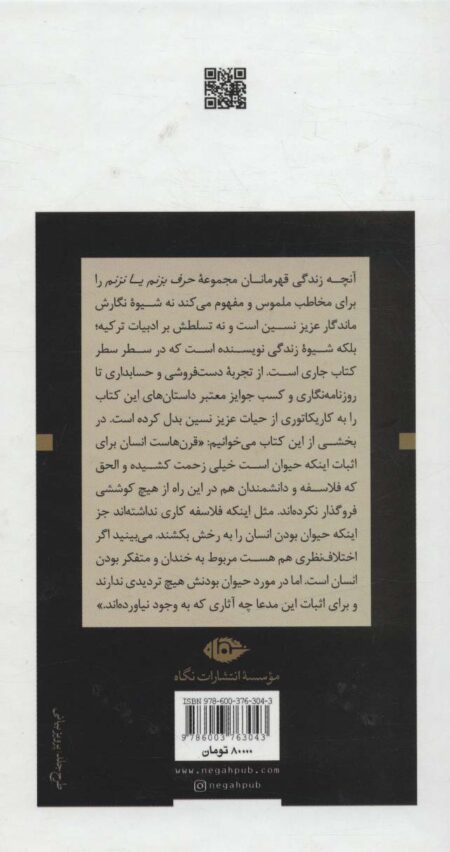 آنچه زندگی قهرمانان مجموعهٔ حرف بزنم یا نزنم را
برای مخاطب ملموس و مفهوم می‌کند نه شیوهٔ نگارش
ماندگار عزیز نسین است و نه تسلطش بر ادبیات ترکیه؛
بلکه شیوهٔ زندگی نویسنده است که در سطر سطر
کتاب جاری است. از تجربهٔ دست‌فروشی و حسابداری تا
روزنامه‌نگاری و کسب جوایز معتبر داستان‌های این کتاب
را به کاریکاتوری از حیات عزیز نسین بدل کرده است. در
بخشی از این کتاب می‌خوانیم: «قرن‌هاست انسان برای
اثبات اینکه حیوان است خیلی زحمت کشیده و الحق
که فلاسفه و دانشمندان هم در این راه از هیچ کوششی
فروگذار نکرده‌اند. مثل اینکه فلاسفه کاری نداشته‌اند جز
اینکه حیوان بودن انسان را به رخش بکشند. می‌بینید اگر
اختلاف‌نظری هم هست مربوط به خندان و متفکر بودن
انسان است. اما در مورد حیوان بودنش هیچ تردیدی ندارند
و برای اثبات این مدعا چه آثاری که به وجود نیاورده‌اند.»
مؤسسهٔ انتشارات نگاه
ISBN 978-600-376-304-3
9786003763043
۸۰۰۰۰ تومان
www.negahpub.com
negahpub
طرح جلد: پرویز بیانی